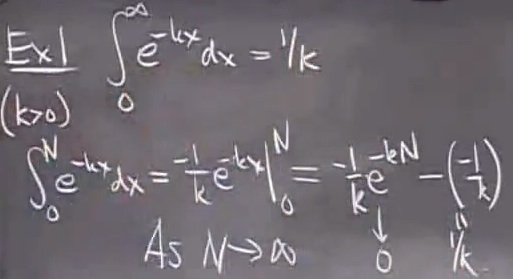 Ex1 ∫₀^∞ e^{-kx} dx = 1/k
(k>0)
∫₀^N e^{-kx} dx = -1/k e^{-kx} |₀^N = -1/k e^{-kN} - (-1/k)
As N→∞ ↓ 0 " 1/k